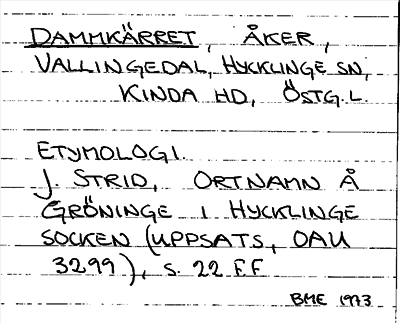 DAMMKÄRRET, ÅKER,
VALLINGEDAL, HYCKLINGE SN,
KINDA HD, ÖSTG.L.
ETYMOLOGI.
J. STRID, ORTNAMN Å
GRÖNINGE I HYCKLINGE
SOCKEN (UPPSATS, OAU
3299), S. 22 F.F
BME 1973